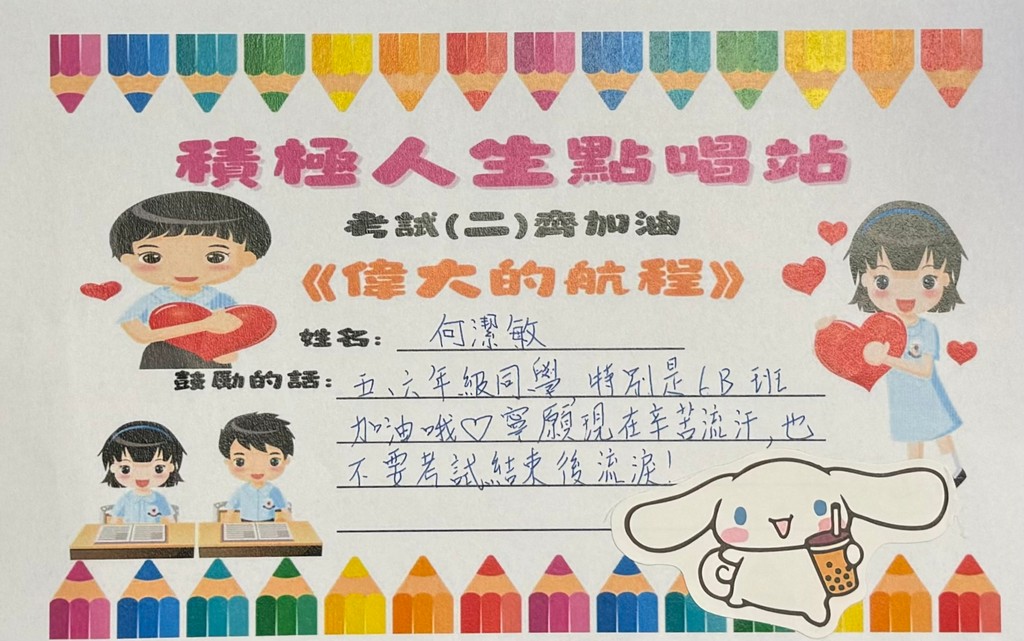 積極人生點唱站
考試(二)齊加油
《偉大的航程》
姓名: 何潔敏
鼓勵的話: 五、六年級同學,特別是6B班
加油哦♡寧願現在辛苦流汗,也
不要考試結束後流淚!